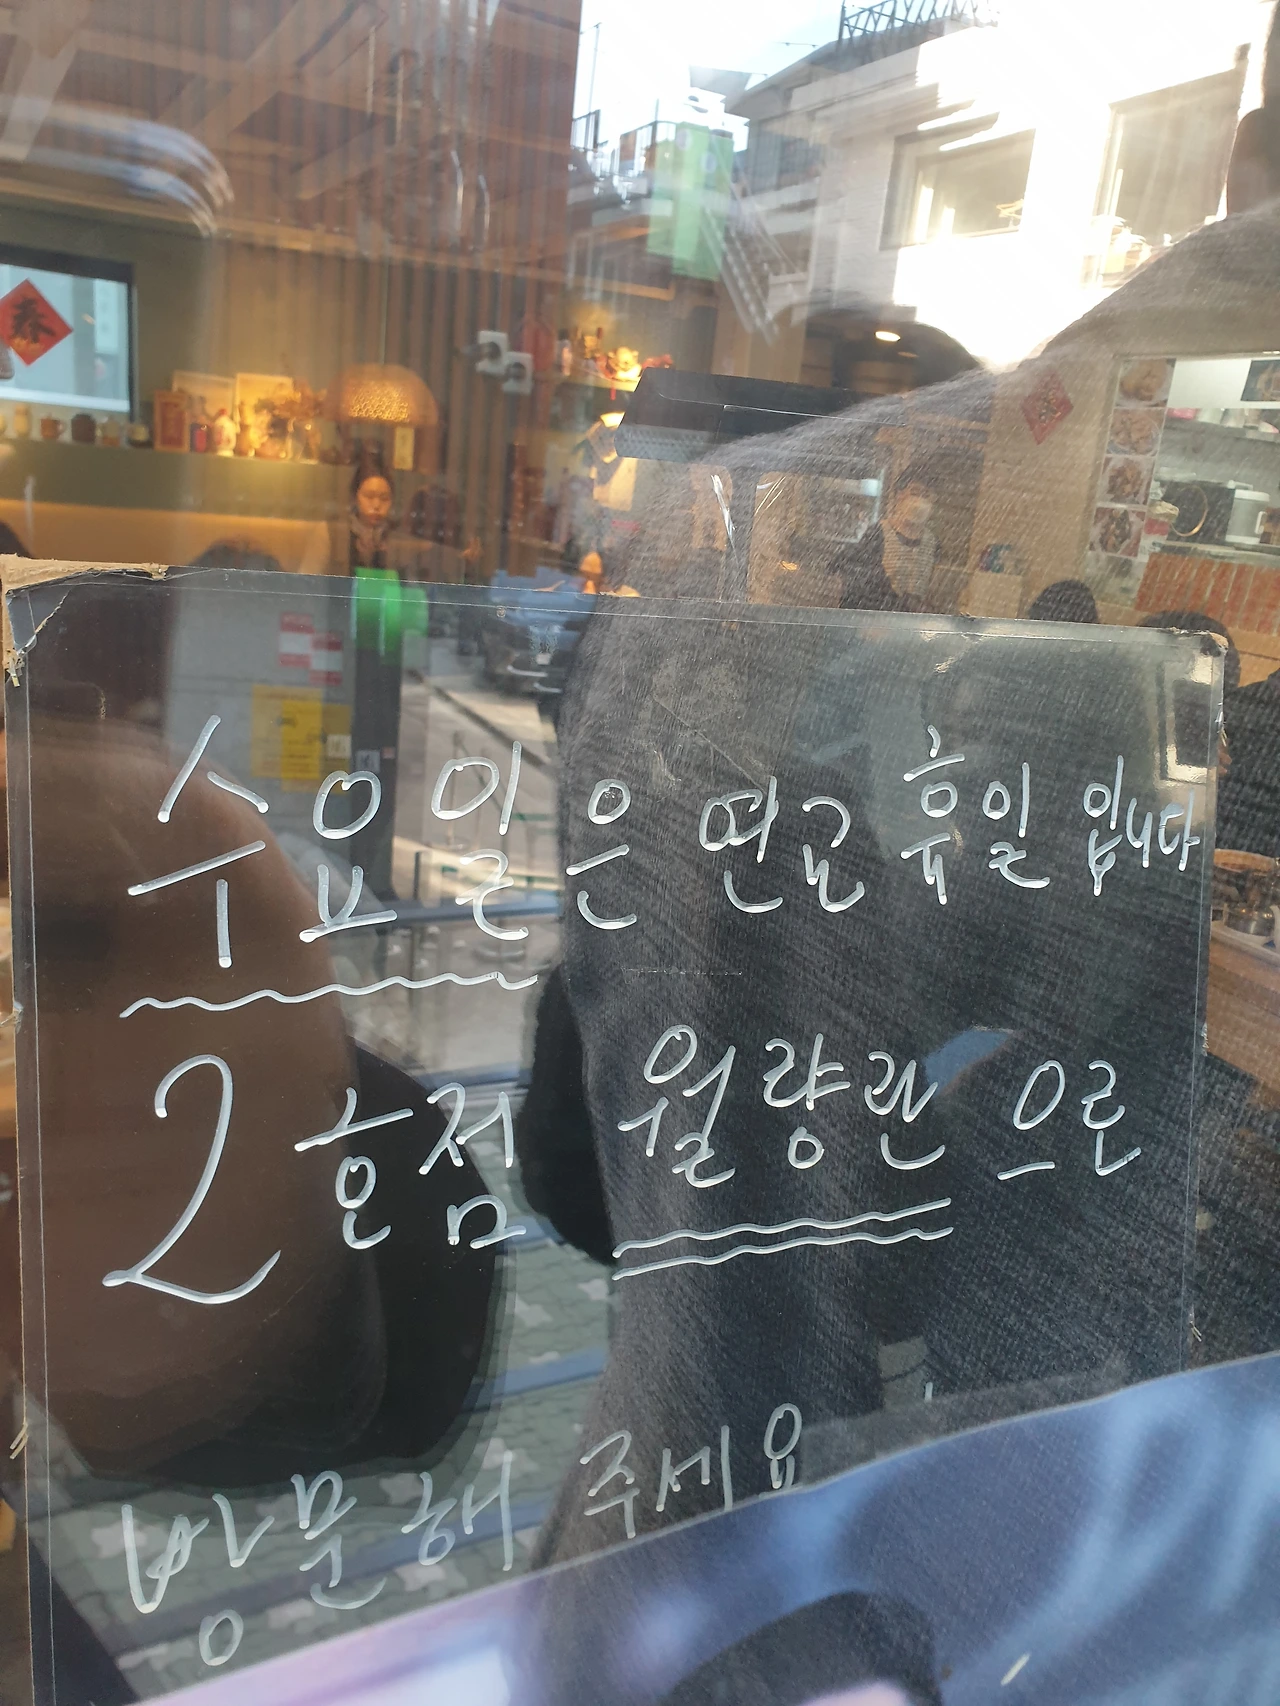 春
수요일은 연교 휴일 입니다
2호점 월량관 으로
방문해 주세요